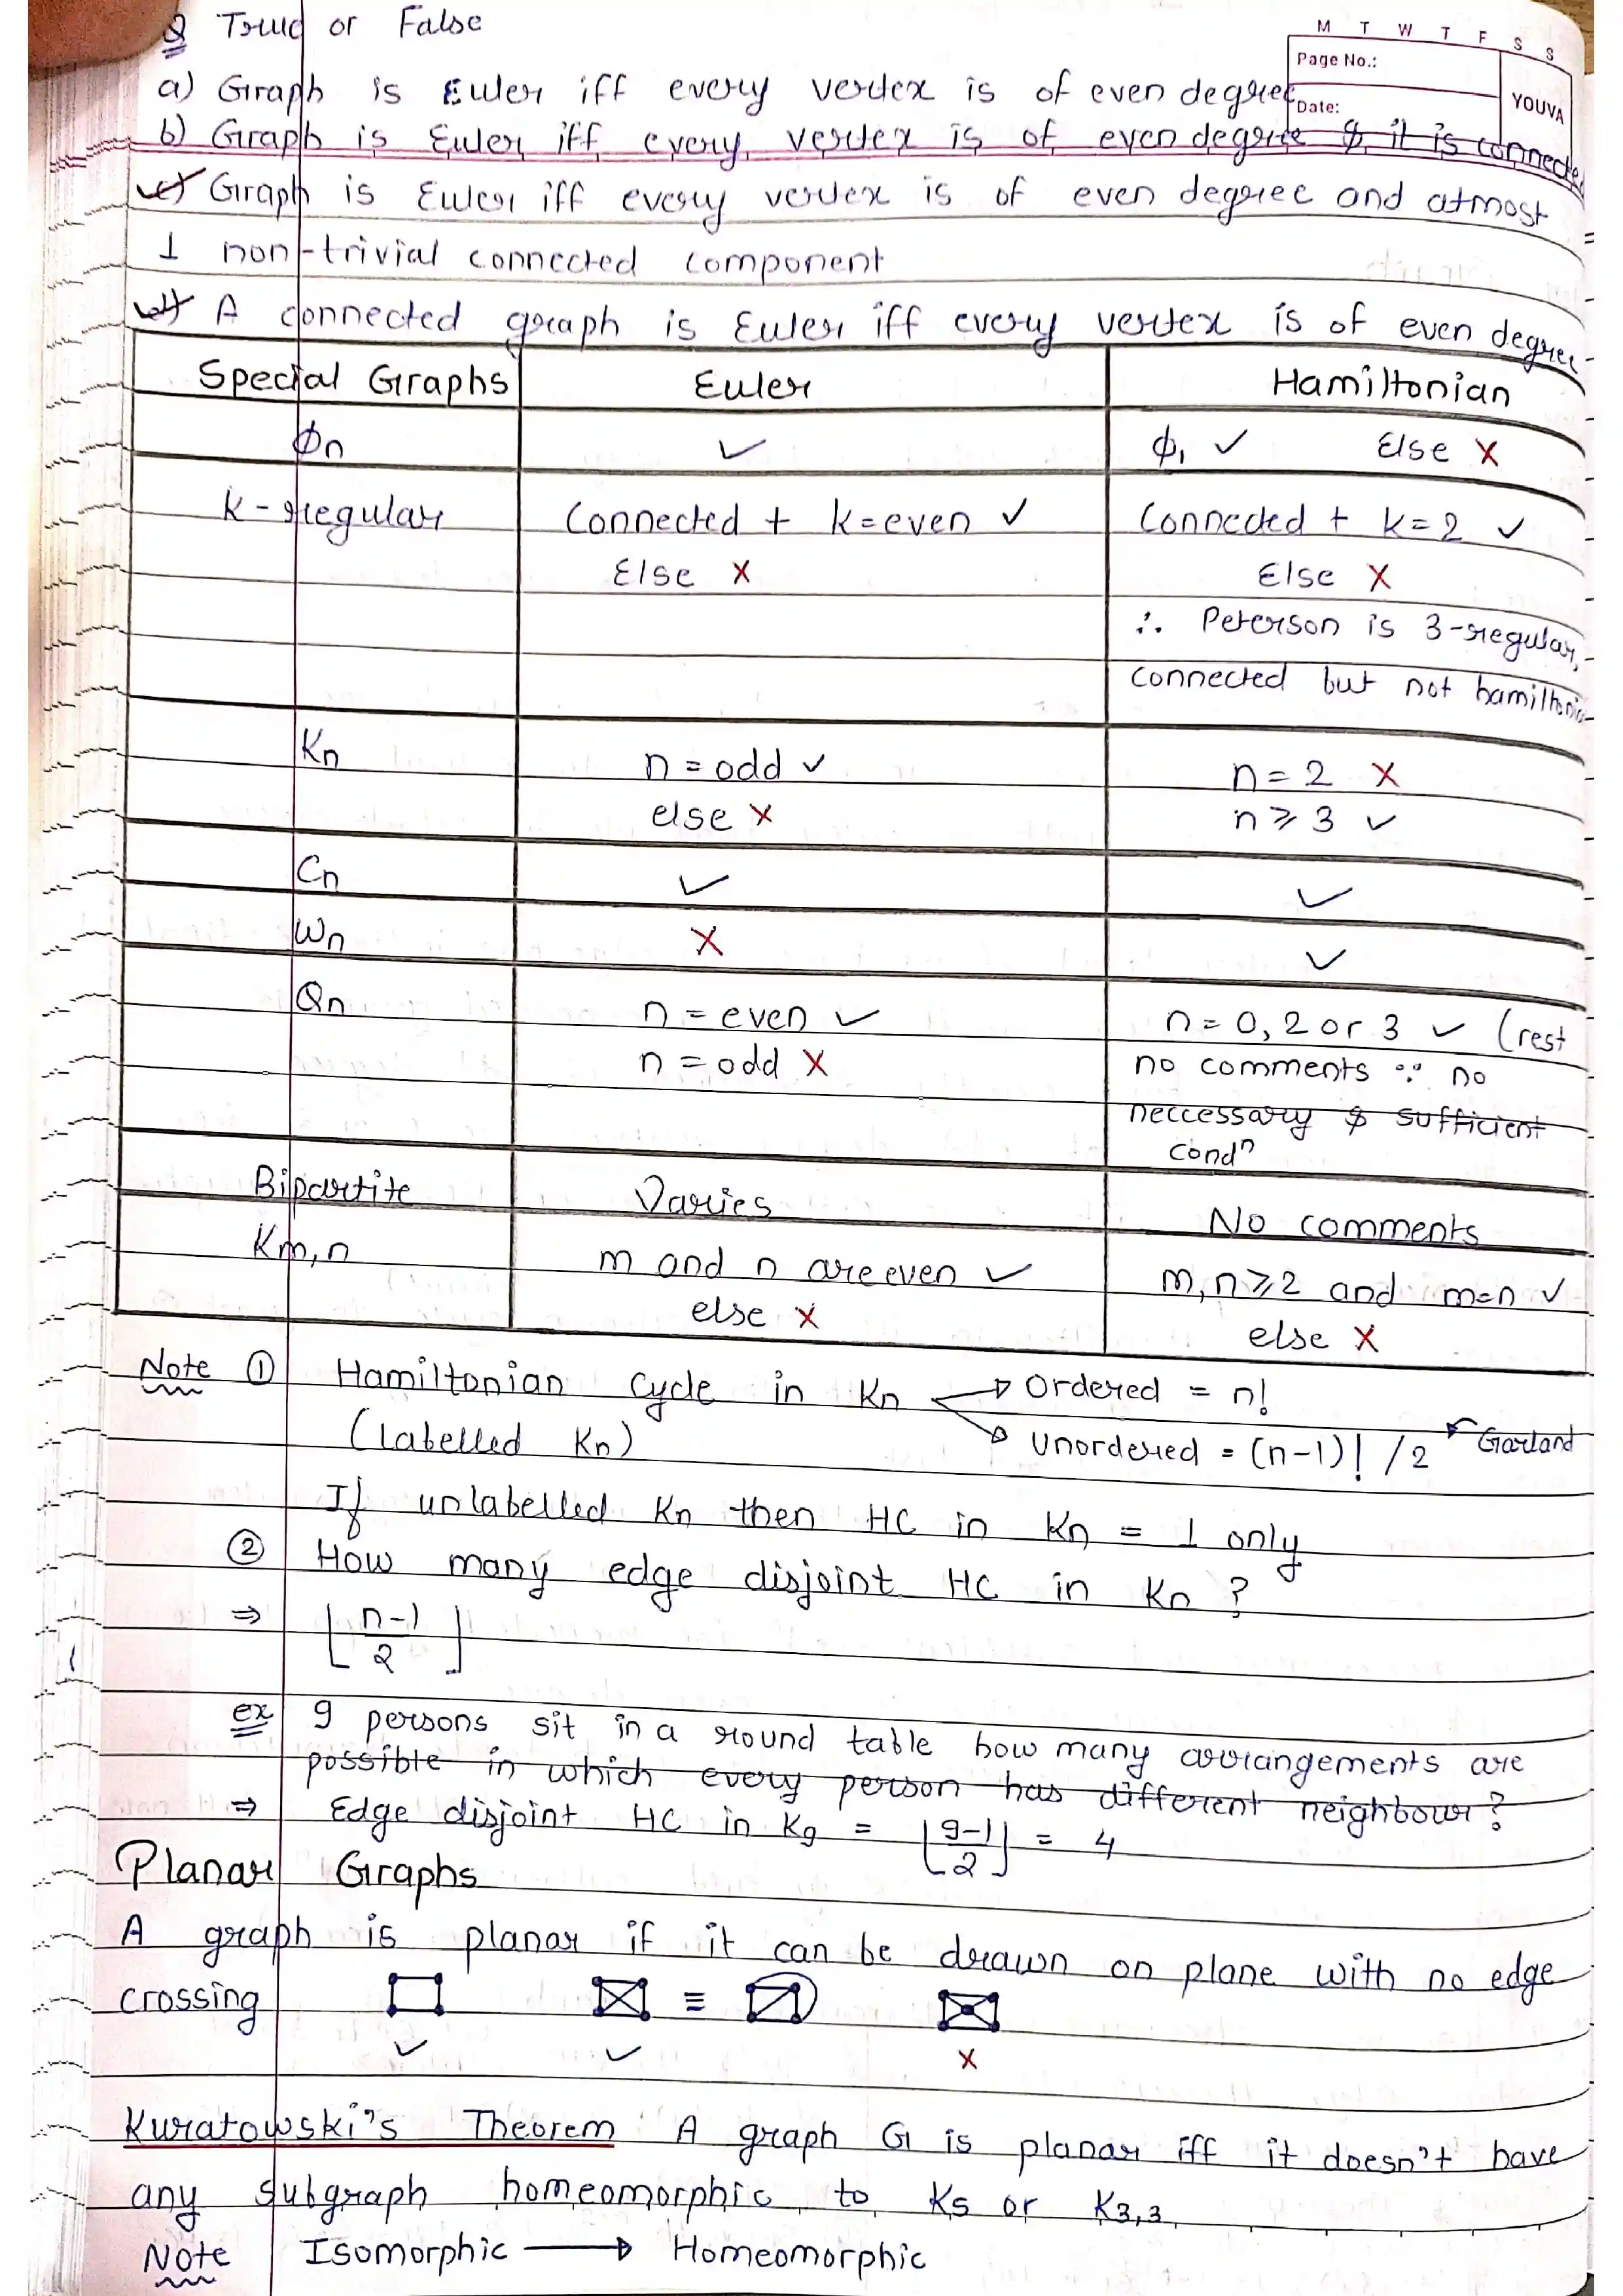 Q True or False
M T W T F S S
Page No.:
Date:
YOUVA
a) Graph is Euler iff every vertex is of even degree
b) Graph is Euler iff every vertex is of even degree & it is connected
c) Graph is Euler iff every vertex is of even degree and atmost
1 non-trivial connected component
d) A connected graph is Euler iff every vertex is of even degree
Special Graphs Euler Hamiltonian
Φn ✓ Φ1 ✓ Else ✗
K-regular Connected + k=even ✓ Connected + k=2 ✓
Else ✗ Else ✗
∴ Peterson is 3-regular,
connected but not hamiltonia
Kn n = odd ✓ n = 2 ✗
else ✗ n ⩾ 3 ✓
Cn ✓ ✓
Wn ✗ ✓
Qn n = even ✓ n = 0, 2 or 3 ✓ (rest
n = odd ✗ no comments ∵ no
neccessary & sufficient
condⁿ
Bipartite Varies No comments
Km,n m and n are even ✓ m,n ⩾ 2 and m=n ✓
else ✗ else ✗
Note ① Hamiltonian Cycle in Kn → Ordered = n!
(Labelled Kn) → Unordered = (n-1)! /2 Garland
If unlabelled Kn then HC in Kn = 1 only
② How many edge disjoint HC in Kn ?
⇒ ⌊(n-1)/2⌋
ex 9 persons sit in a round table how many arrangements are
possible in which every person has different neighbour?
⇒ Edge disjoint HC in K9 = ⌊(9-1)/2⌋ = 4
Planar Graphs
A graph is planar if it can be drawn on plane with no edge
crossing ≡
✓ ✓ ✗
Kuratowski's Theorem A graph G is planar iff it doesn't have
any subgraph homeomorphic to K5 or K3,3
Note Isomorphic → Homeomorphic